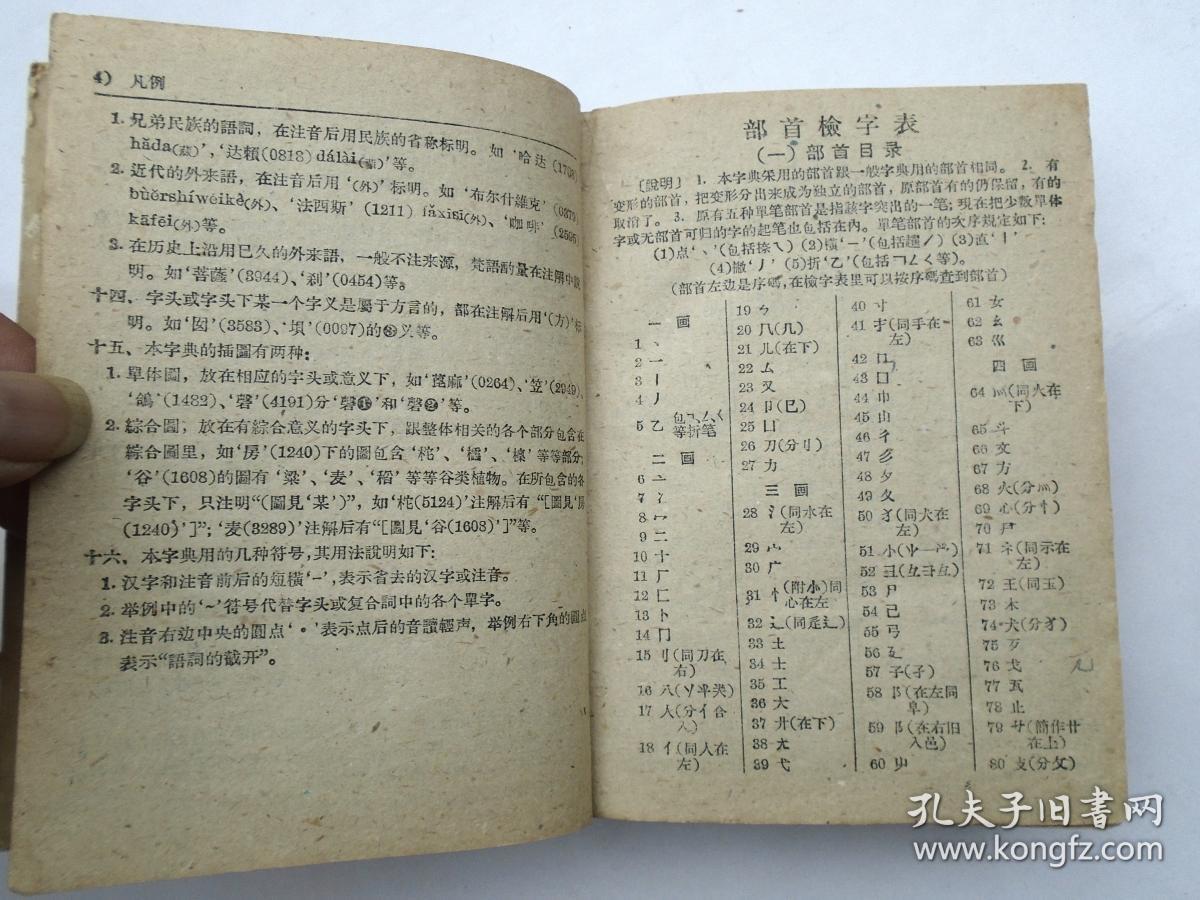 4) 凡例
1. 兄弟民族的語詞，在注音后用民族的省称标明。如‘哈达(1708)
hǎda(藏)’,‘达賴(0818) dálài(藏)’等。
2. 近代的外来語，在注音后用‘(外)’标明。如‘布尔什維克’(0379)
bùěrshíwéikè(外)、‘法西斯’(1211) fǎxīsī(外)、‘咖啡’(2595)
kāfēi(外)等。
3. 在历史上沿用已久的外来語，一般不注来源，梵語酌量在注解中說
明。如‘菩薩’(3944)、‘刹’(0454)等。
十四、字头或字头下某一个字义是屬于方言的，都在注解后用‘(方)’标
明。如‘囡’(3583)、‘垻’(0097)的义等。
十五、本字典的插圖有两种：
1. 单体圖，放在相应的字头或意义下，如‘蓖麻’(0264)、‘笠’(2949)、
‘鴿’(1482)、‘磬’(4191)分‘磬❶’和‘磬❷’等。
2. 綜合圖；放在有綜合意义的字头下，跟整体相关的各个部分包含在
綜合圖里，如‘房’(1240)下的圖包含‘柁’、‘檩’等等部分；
‘谷’(1608)的圖有‘粱’、‘麦’、‘稻’等等谷类植物。在所包含的各
字头下，只注明“(圖見‘某’)”，如‘柁(5124)’注解后有“[圖見‘房
(1240)’]”；‘麦(3289)’注解后有“[圖見‘谷(1608)’]”等。
十六、本字典用的几种符号，其用法說明如下：
1. 汉字和注音前后的短橫‘-’,表示省去的汉字或注音。
2. 举例中的‘~’符号代替字头或复合詞中的各个單字。
3. 注音右边中央的圆点‘·’表示点后的音讀輕声，举例右下角的圆点
表示“語詞的截开”。
部首檢字表
(一)部首目录
〔說明〕 1. 本字典采用的部首跟一般字典用的部首相同。 2. 有
变形的部首，把变形分出来成为独立的部首，原部首有的仍保留，有的
取消了。 3. 原有五种單笔部首是指該字突出的一笔；現在把少数單体
字或无部首可归的字的起笔也包括在內。單笔部首的次序規定如下：
(1)点‘丶’(包括捺㇏) (2)橫‘一’(包括趯㇀) (3)直‘丨’
(4)撇‘丿’ (5)折‘乙’(包括㇕乚𡿨等)。
(部首左边是序碼，在檢字表里可以按序碼查到部首)
一 画
1 丶
2 一
3 丨
4 丿
5 乙 包㇕、ㄥ𡿨
等折笔
二 画
6 亠
7 冫
8 冖
9 二
10 十
11 厂
12 匚
13 卜
14 冂
15 刂(同刀在
右)
16 八(丷)
17 人(分亻合
入)
18 亻(同人在
左)
19 勹
20 几(几)
21 儿(在下)
22 厶
23 又
24 卩(㔾)
25 凵
26 刀(分刂)
27 力
三 画
28 氵(同水在
左)
29 宀
30 广
31 忄(附㣺)同
心在左
32 辶(同辵辶)
33 土
34 士
35 工
36 大
37 廾(在下)
38 尢
39 弋
40 寸
41 扌(同手在
左)
42 口
43 囗
44 巾
45 山
46 彳
47 彡
48 夕
49 夂
50 犭(同犬在
左)
51 小
52 彐(彑ヨ彑)
53 尸
54 己
55 弓
56 廴
57 子(孑)
58 阝(在左同
阜)
59 阝(在右旧
入邑)
60 屮
61 女
62 幺
63 巛
四 画
64 灬(同火在
下)
65 斗
66 文
67 方
68 火(分灬)
69 心(分忄)
70 尸
71 礻(同示在
左)
72 王(同玉)
73 木
74 犬(分犭)
75 歹
76 戈
77 瓦
78 止
79 艹(簡作艹
在上)
80 支(分攵)
孔夫子旧书网
www.kongfz.com